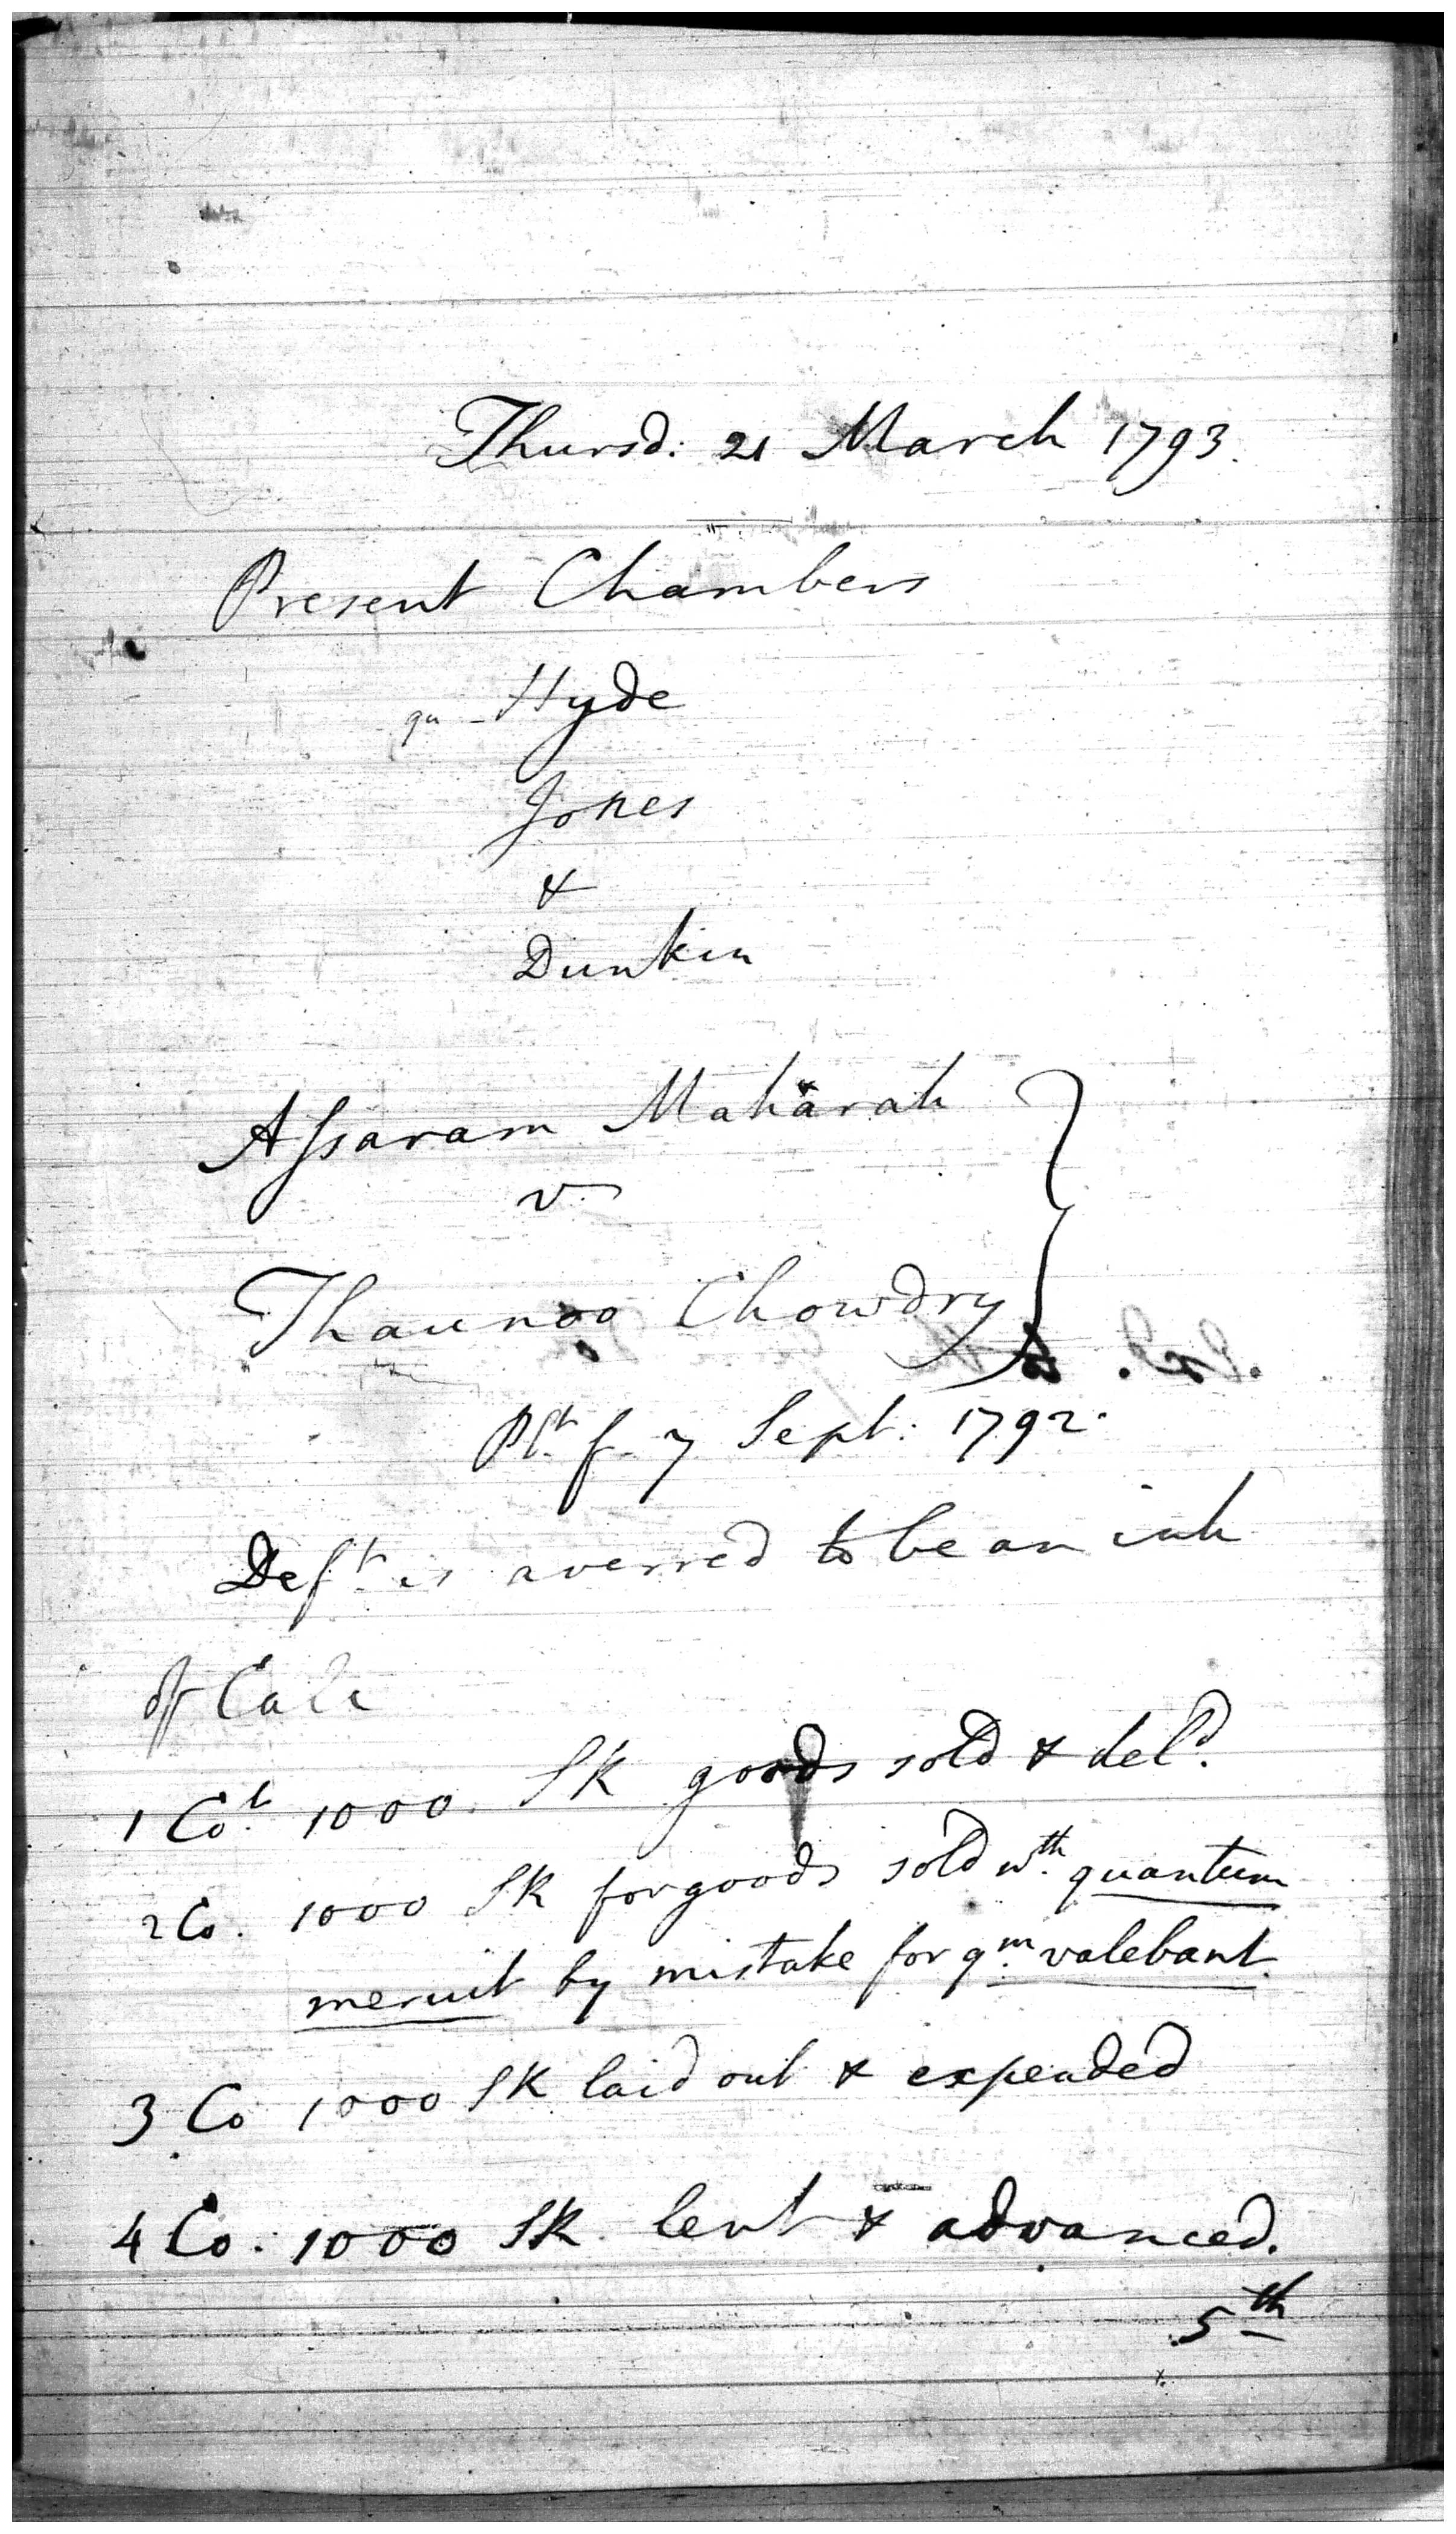 Thursd: 21 March 1793.
Present Chambers
qu - Hyde
Jones
&
Dunkin
Assaram Maharah
v
Thaunoo Chowdry
Plt f. 7 Sept: 1792.
Deft is averred to be an inh
of Calc
1 Cot. 1000. SR goods sold & deld.
2 Co. 1000 SR for goods sold wth. quantum
meruit by mistake for qm. valebant.
3 Co 1000 SR laid out & expended
4 Co. 1000 SR. lent & advanced.
5th